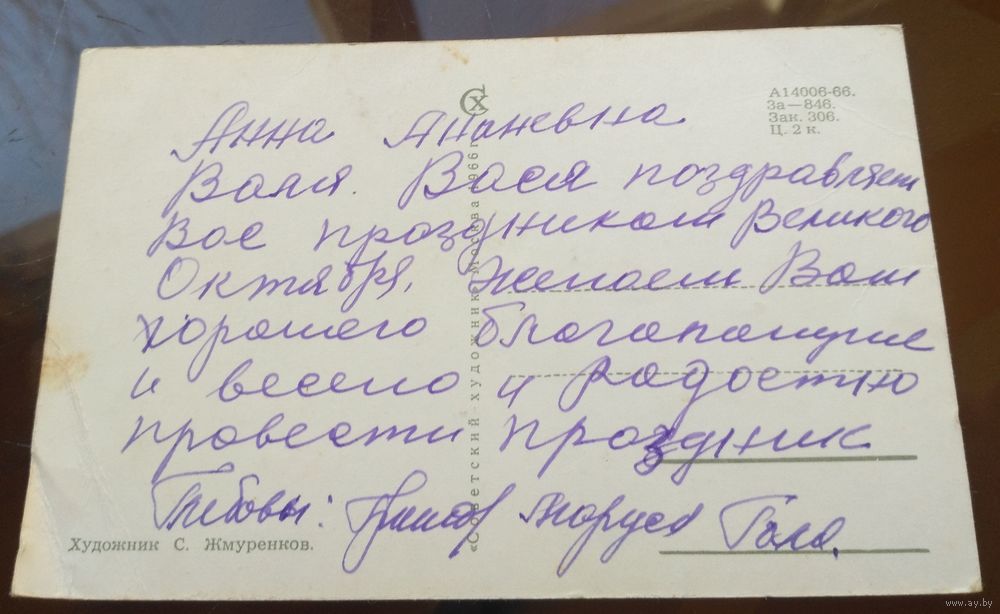 СХ
А14006-66.
За—846.
Зак. 306.
Ц. 2 к.
Анна
Валя. Вася поздравляем
Вас праздником Великого
Октября, желаем Вам
хорошего благополучие
и весело и радостию
провести праздник
Маруся Галя.
Художник С. Жмуренков.
«Советский художник» Москва 1966 г.
www.ay.by